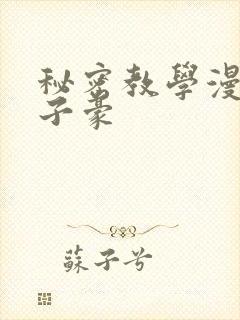 秘密教學漫
子豪
蘇子兮